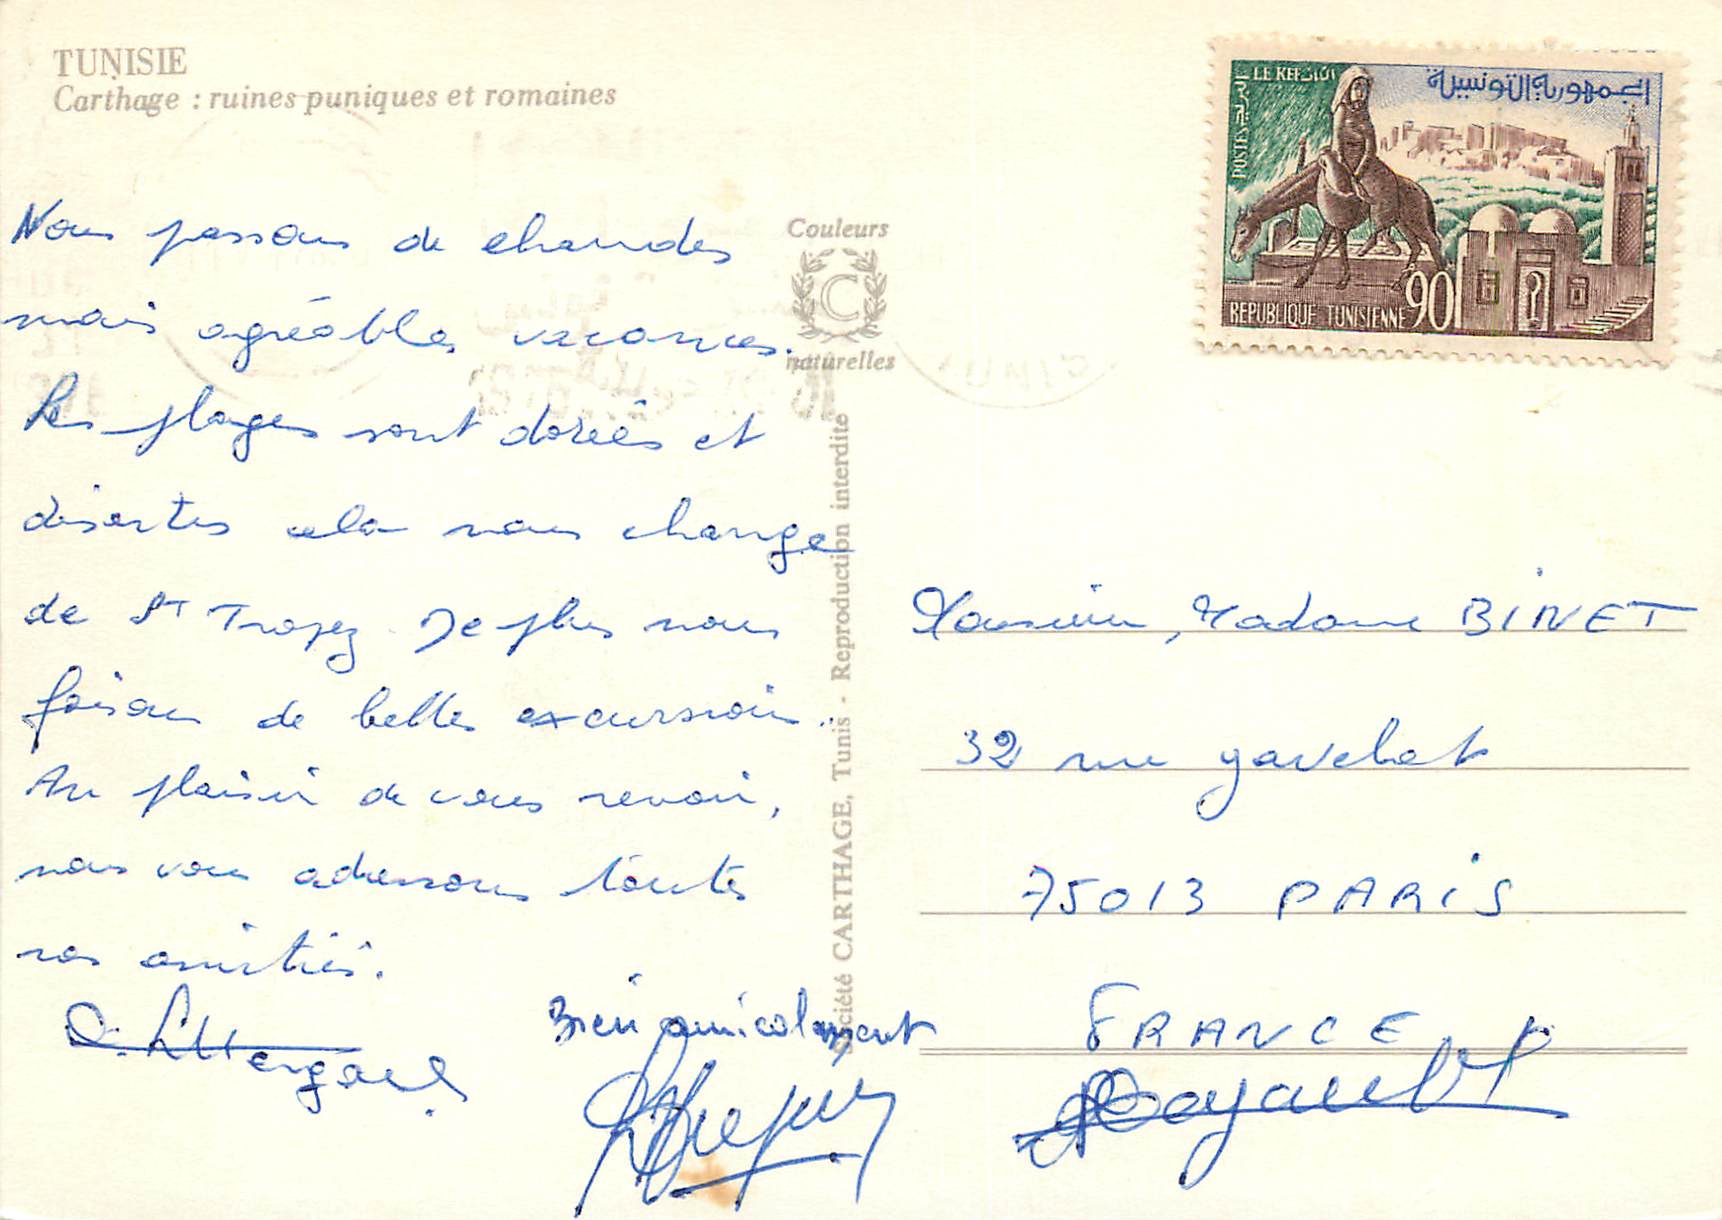 TUNISIE
Carthage : ruines puniques et romaines
Nous passons de chaudes
mais agréables vacances.
Les plages sont dorées et
désertes cela nous change
de St Tropez. De plus nous
faisons de belles excursions.
Au plaisir de vous revoir,
nous vous adressons toutes
nos amitiés.
Bien amicalement
Couleurs
C
naturelles
Société CARTHAGE, Tunis - Reproduction interdite
POSTES البريد
LE KEF الكاف
الجمهورية التونسية
REPUBLIQUE TUNISIENNE 90
Monsieur, Madame BINET
32 rue javelot
75013 PARIS
FRANCE